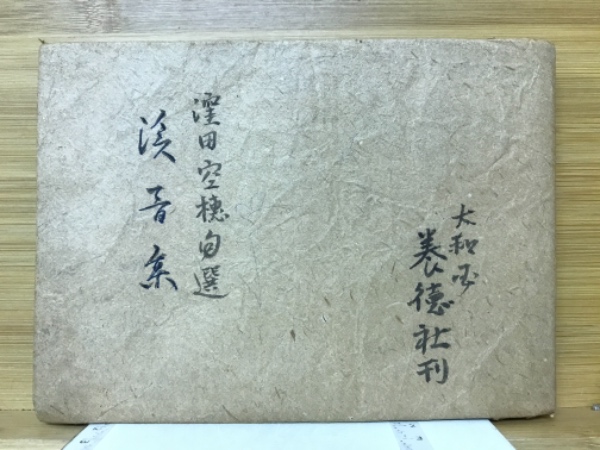 大和
養徳社刊
窪田空穂自選
渓音集